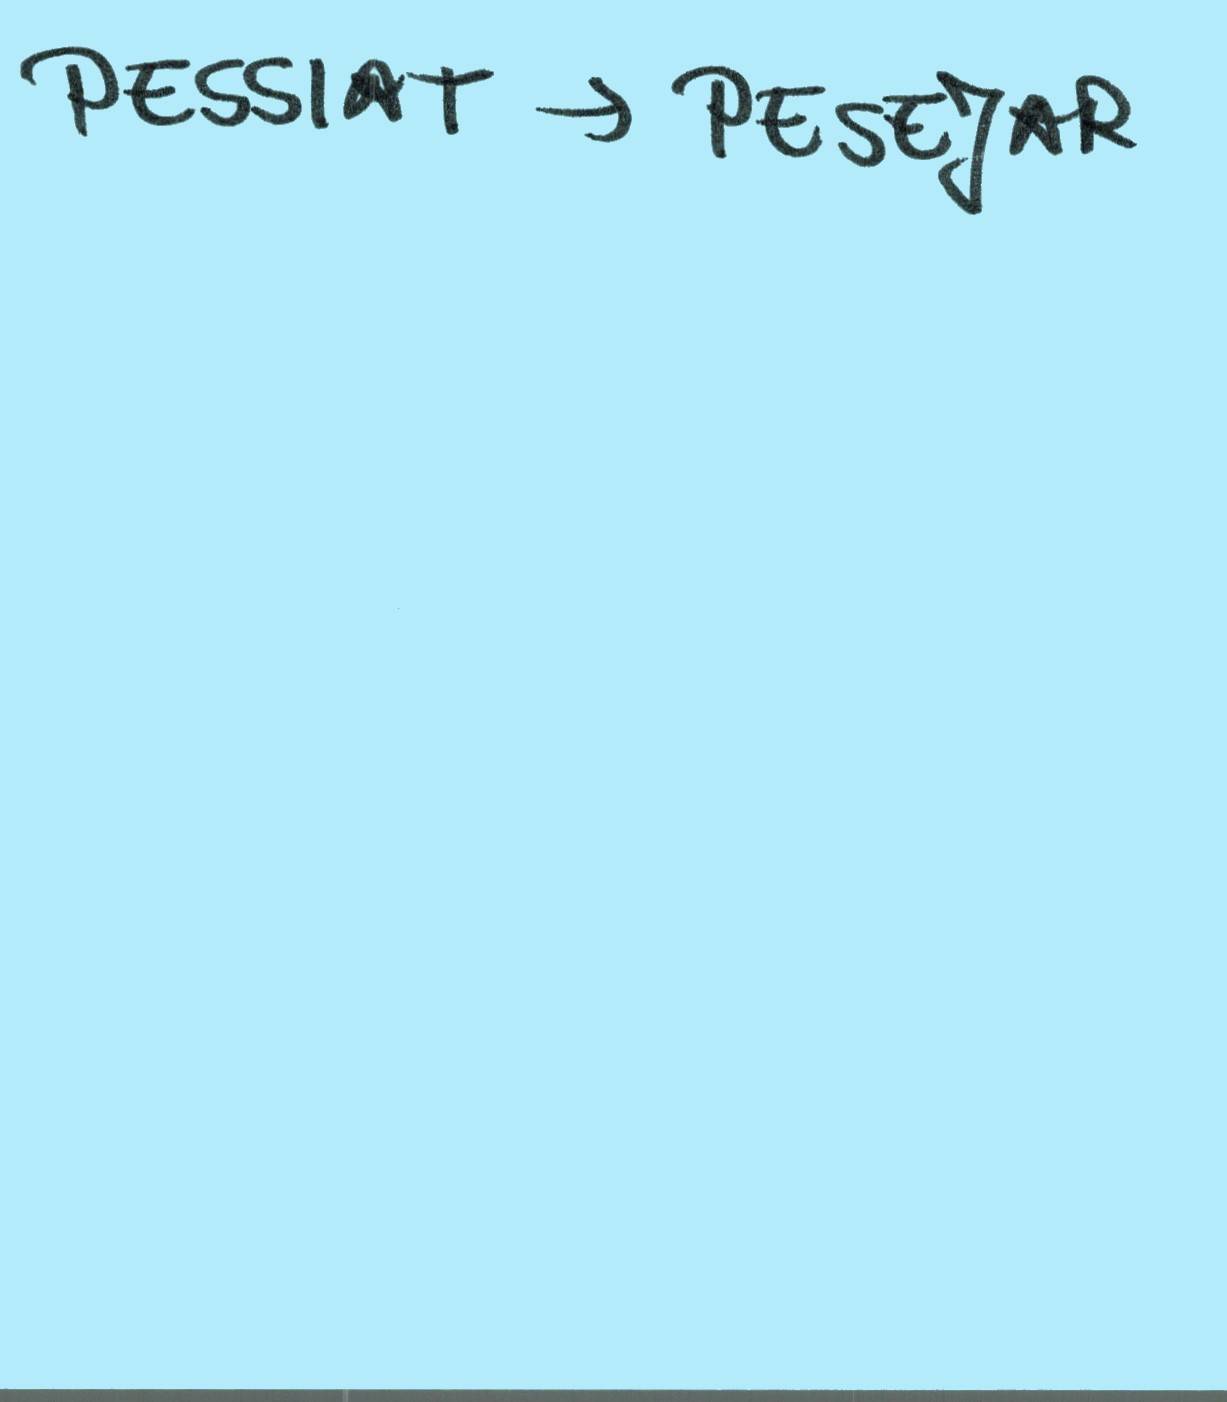 PESSIAT → PESEJAR